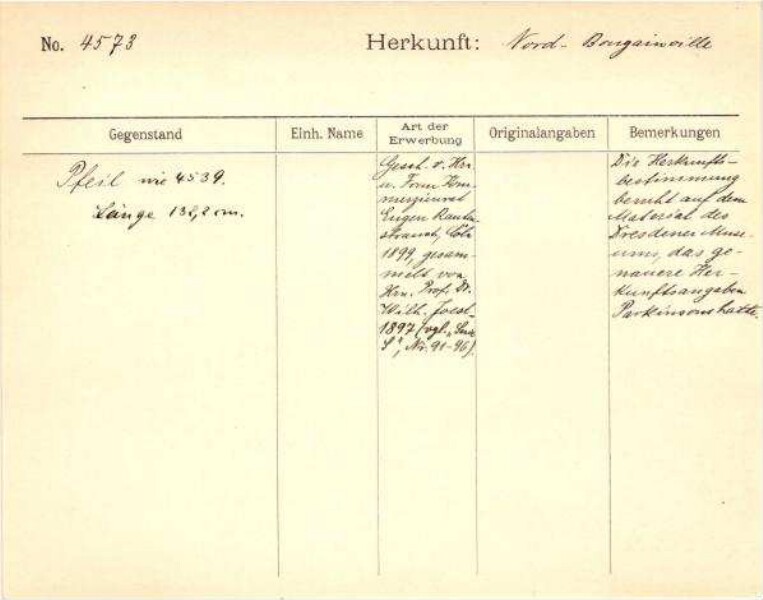 No. 4573
Herkunft: Nord-Bougainville
Gegenstand
Einh. Name
Art der
Erwerbung
Originalangaben
Bemerkungen
Pfeil wie 4539.
Länge 138,2 cm.
Gesch. v. Hrn.
u. Frau Kom-
merzienrat
Eugen Rauten-
strauch, Cöln
1899, gesam-
melt von
Hrn. Prof. Dr.
Wilh. Joest
1897 (vgl.
S", Nr. 91-96).
Die Herkunfts-
bestimmung
beruht auf dem
Material des
Dresdener Muse-
ums, das ge-
nauere Her-
kunftsangaben
Parkinsons hatte.